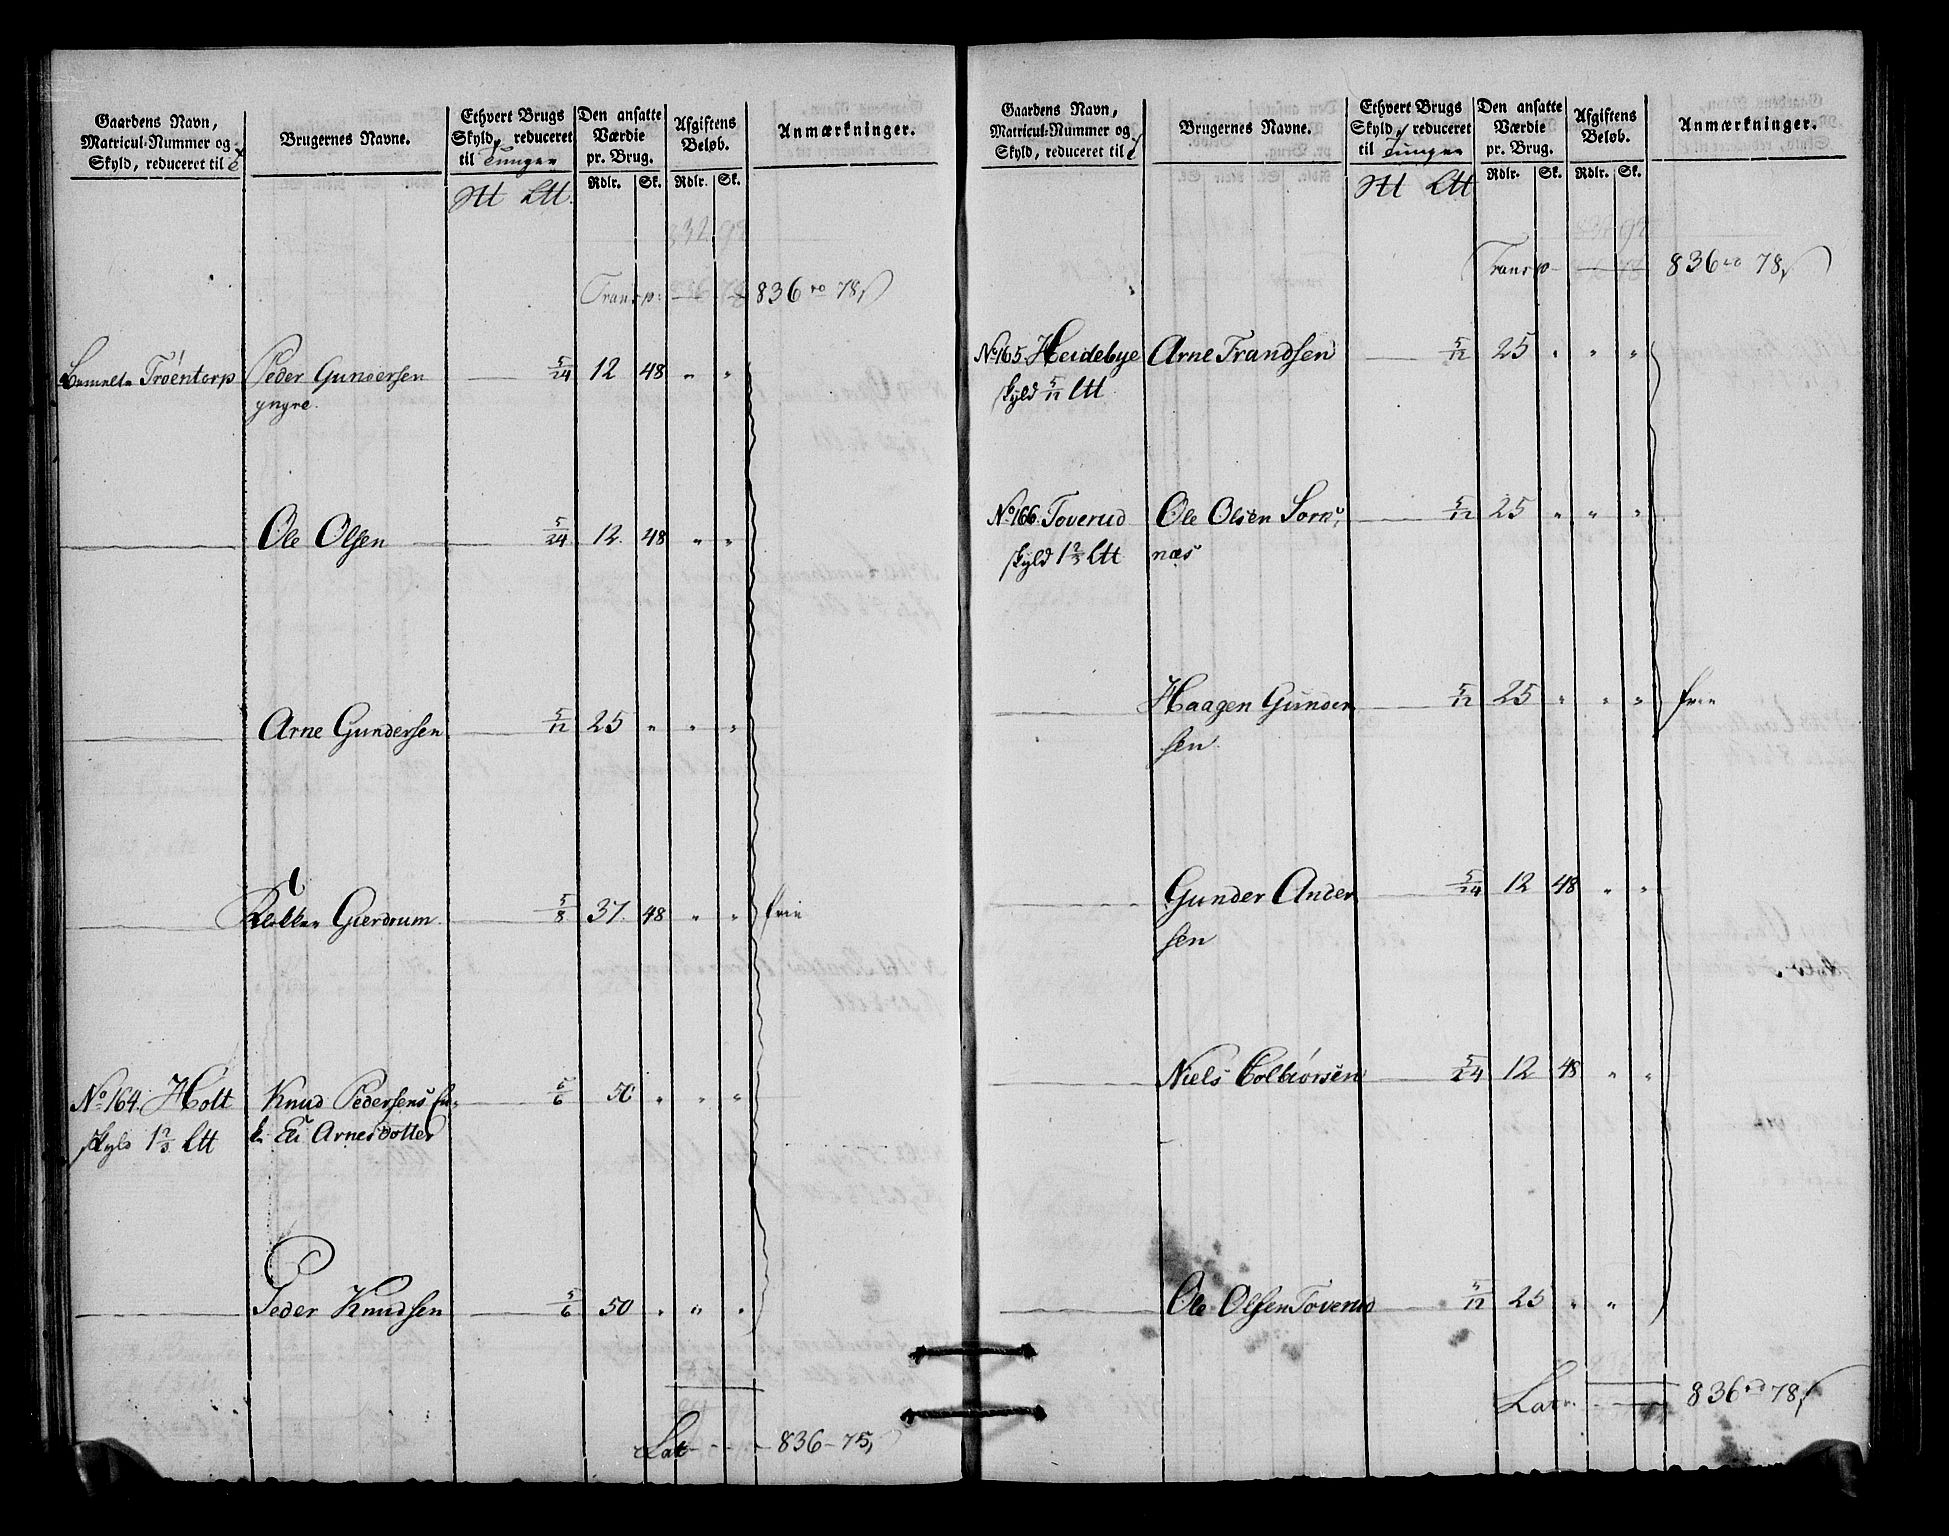 Gaardens Navn,
Matricul-Nummer og
Skyld, reduceret til
Brugernes Navne.
Ethvert Brugs
Skyld, reduceret
til Tunger
Den ansatte
Værdie
pr. Brug.
Afgiftens
Beløb.
Anmærkninger.
Rdlr. Sk. Rdlr. Sk.
Transp: 836 rd 78
Troentorp Peder Gundersen 5/24 12 48 " "
yngre.
Ole Olsen 5/24 12. 48 " "
Arne Gundersen 5/12 25 " " "
Gierdrum 5/8 37. 48 " " frie
No 164. Holt Knud Pedersens 5/6 50 " " "
skyld 1 2/3 Ltt Eli Arnesdotter
Peder Knudsen 5/6 50 " " "
Lat 836 - 75
Gaardens Navn,
Matricul-Nummer og
Skyld, reduceret til
Brugernes Navne.
Ethvert Brugs
Skyld, reduceret
til Tunger
Den ansatte
Værdie
pr. Brug.
Afgiftens
Beløb.
Anmærkninger.
Rdlr. Sk. Rdlr. Sk.
Transp 836 rd 78
No 165. Heidebye Arne Frandsen 5/12 25 " " "
skyld 5/12 Ltt
No 166. Toverud Ole Olsen Sors 5/12 25 " " "
skyld 1 2/3 Ltt næs
Haagen Gunder 5/12 25 " " " frie
sen
Gunder Ander 5/24 12 48 " "
sen
Niels Colbiörsen 5/24 12 48 " "
Ole Olsen Toverud 5/12 25 " "
Lat 836 rd 78